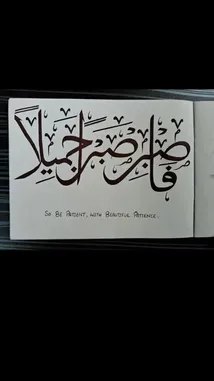 فاصبر صبراً جميلاً
So Be Patient, with Beautiful Patience.